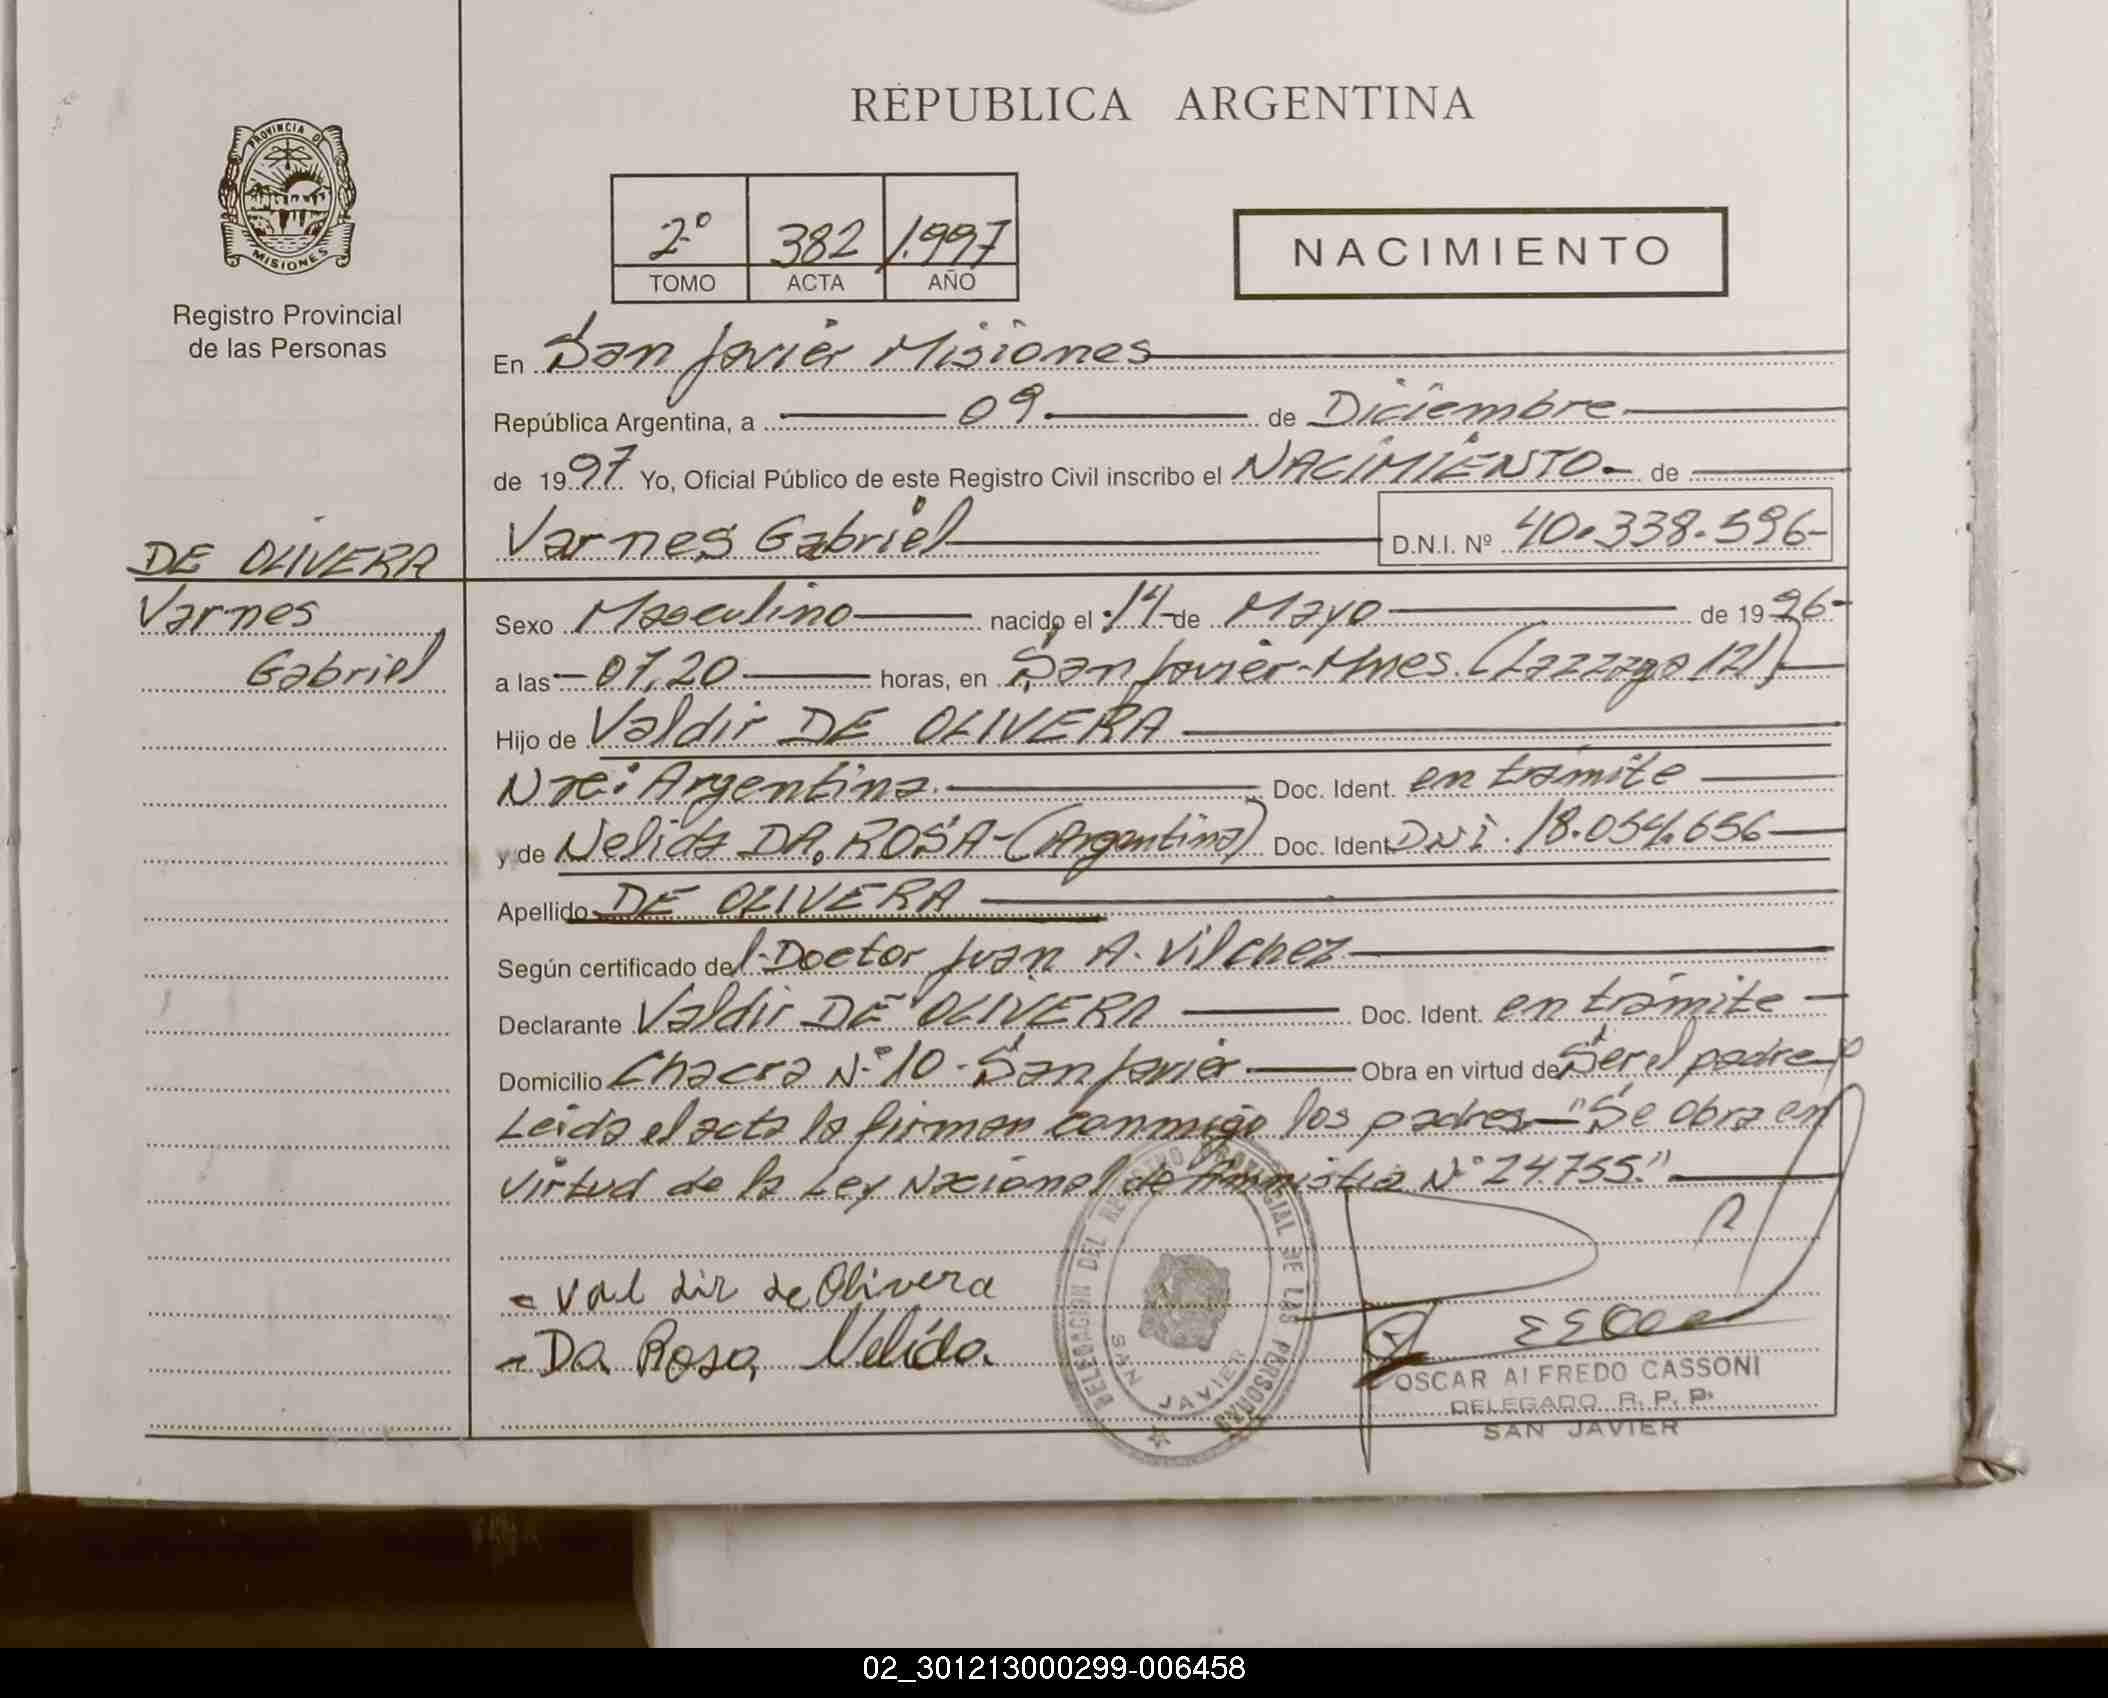 REPUBLICA ARGENTINA
PROVINCIA DE
MISIONES
Registro Provincial
de las Personas
2º 382 1.997
TOMO ACTA AÑO
NACIMIENTO
En San Javier Misiones
República Argentina, a 09 de Diciembre
de 1997 Yo, Oficial Público de este Registro Civil inscribo el NACIMIENTO de
Varnes Gabriel D.N.I. Nº 40.338.596
DE OLIVERA
Varnes
Gabriel
Sexo Masculino nacido el 14 de Mayo de 1996
a las 07,20 horas, en San Javier-Mnes. (Lazzaga 121)
Hijo de Valdir DE OLIVERA
Nac: Argentina. Doc. Ident. en trámite
y de Nelida DA. ROSA-(Argentina) Doc. Ident DNI. 18.054.656
Apellido DE OLIVERA
Según certificado del Doctor Juan A. Vilchez
Declarante Valdir DE OLIVERA Doc. Ident. en trámite
Domicilio Chacra Nº 10 - San Javier Obra en virtud de Ser el padre
Leida el acta la firman conmigo los padres "Se obra en
virtud de la Ley Nacional de Amnistia Nº 24.755."
Valdir de Olivera
Da Rosa, Nelida
DELEGACION DEL REGISTRO PROVINCIAL DE LAS PERSONAS
SAN JAVIER
OSCAR ALFREDO CASSONI
DELEGADO R. P. P.
SAN JAVIER
02_301213000299-006458